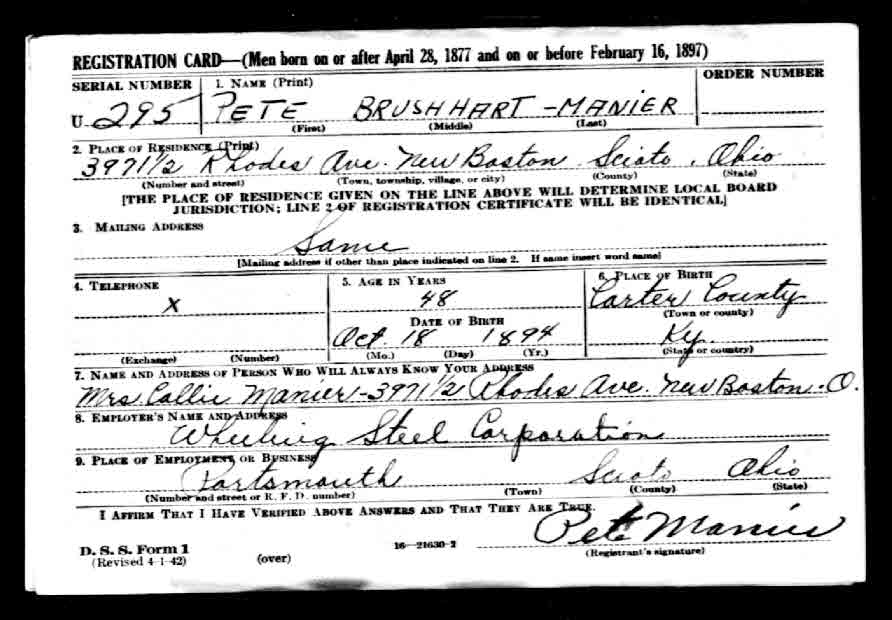 REGISTRATION CARD—(Men born on or after April 28, 1877 and on or before February 16, 1897)
SERIAL NUMBER 1. NAME (Print) ORDER NUMBER
U 295 PETE BRUSHHART - MANIER
(First) (Middle) (Last)
2. PLACE OF RESIDENCE (Print)
3971 1/2 Rhodes Ave. New Boston Scioto. Ohio
(Number and street) (Town, township, village, or city) (County) (State)
[THE PLACE OF RESIDENCE GIVEN ON THE LINE ABOVE WILL DETERMINE LOCAL BOARD
JURISDICTION; LINE 2 OF REGISTRATION CERTIFICATE WILL BE IDENTICAL]
3. MAILING ADDRESS
Same
[Mailing address if other than place indicated on line 2. If same insert word same]
4. TELEPHONE 5. AGE IN YEARS 6. PLACE OF BIRTH
X 48 Carter County
(Town or county)
DATE OF BIRTH
Oct. 18 1894 Ky.
(Exchange) (Number) (Mo.) (Day) (Yr.) (State or country)
7. NAME AND ADDRESS OF PERSON WHO WILL ALWAYS KNOW YOUR ADDRESS
Mrs. Callie Manier - 3971 1/2 Rhodes Ave. New Boston - O.
8. EMPLOYER'S NAME AND ADDRESS
Wheeling Steel Corporation
9. PLACE OF EMPLOYMENT OR BUSINESS
Portsmouth Scioto Ohio
(Number and street or R. F. D. number) (Town) (County) (State)
I AFFIRM THAT I HAVE VERIFIED ABOVE ANSWERS AND THAT THEY ARE TRUE.
Pete Manier
D. S. S. Form 1 16—21630-2 (Registrant's signature)
(Revised 4-1-42) (over)